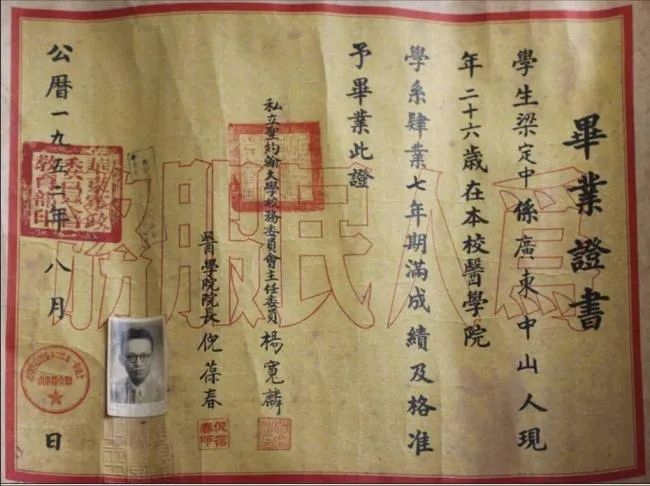 畢業證書
學生梁定中係廣東中山人現
年二十六歲在本校醫學院
學系肄業七年期滿成績及格准
予畢業此證
私立聖約翰大學校務委員會主任委員 楊寬麟
醫學院院長 倪葆春
公曆一九五二年八月 日
為人民服務
倪葆春印